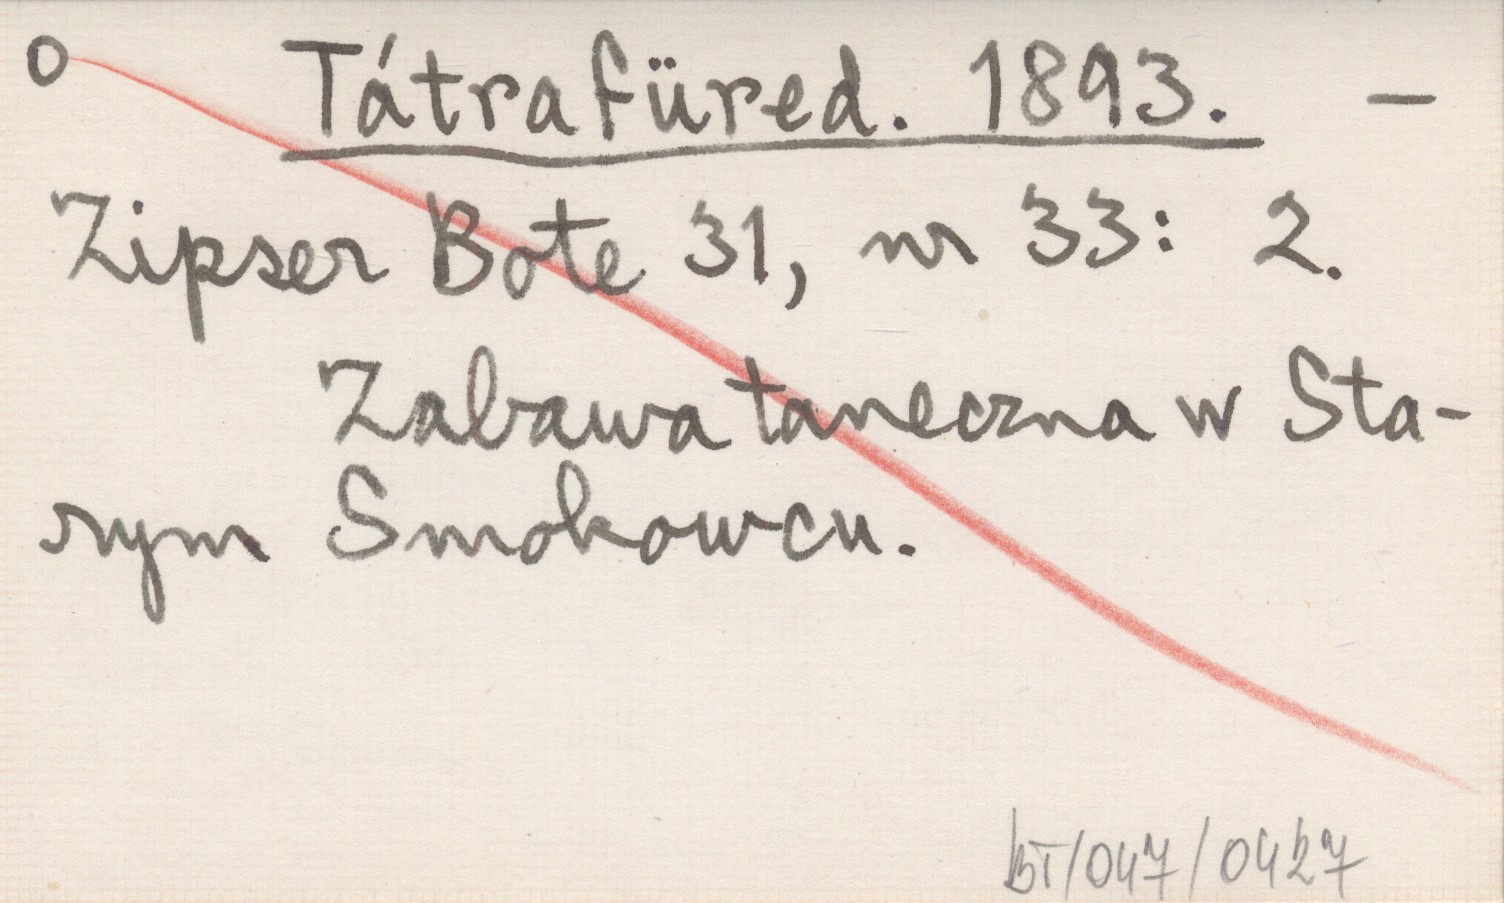 o Tátrafüred. 1893. —
Zipser Bote 31, nr 33: 2.
Zabawa taneczna w Sta-
rym Smokowcu.
bT/047/0427